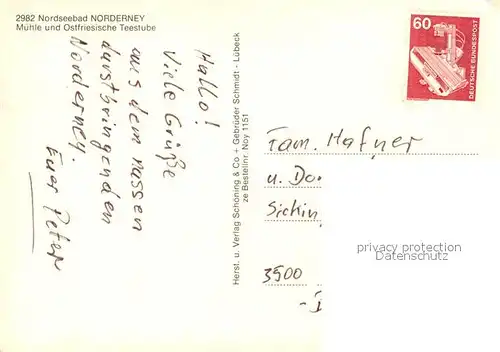 2982 Nordseebad NORDERNEY
Mühle und Ostfriesische Teestube
Hallo!
Viele Grüße
aus dem nassen
durstbringenden
Norderney.
Euer Peter
Herst. u. Verlag Schöning & Co + Gebrüder Schmidt - Lübeck
ze Bestellnr. Noy 1151
60
DEUTSCHE BUNDESPOST
Fam. Hafner
u. Do
Sickin
3500
privacy protection
by Ansichtskarten-Center